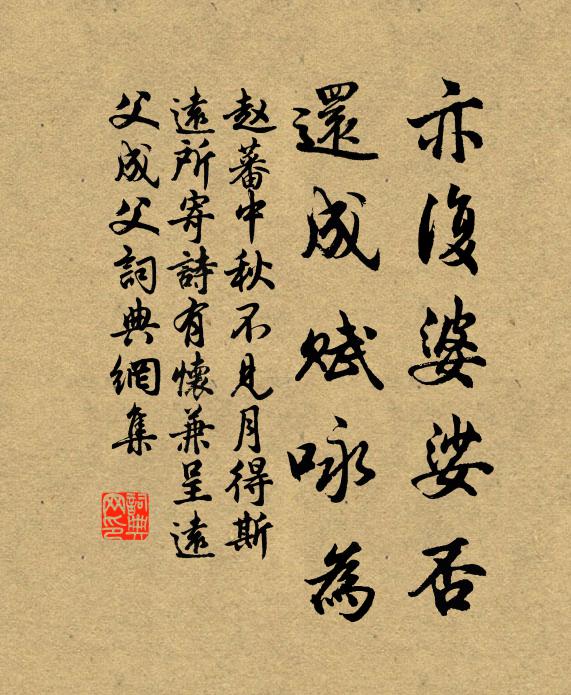 亦復婆娑否
還成賦咏為
赵蕃中秋不見月得斯
遠所寄詩有懷兼呈遠
父成父詞典網集
詞典网印